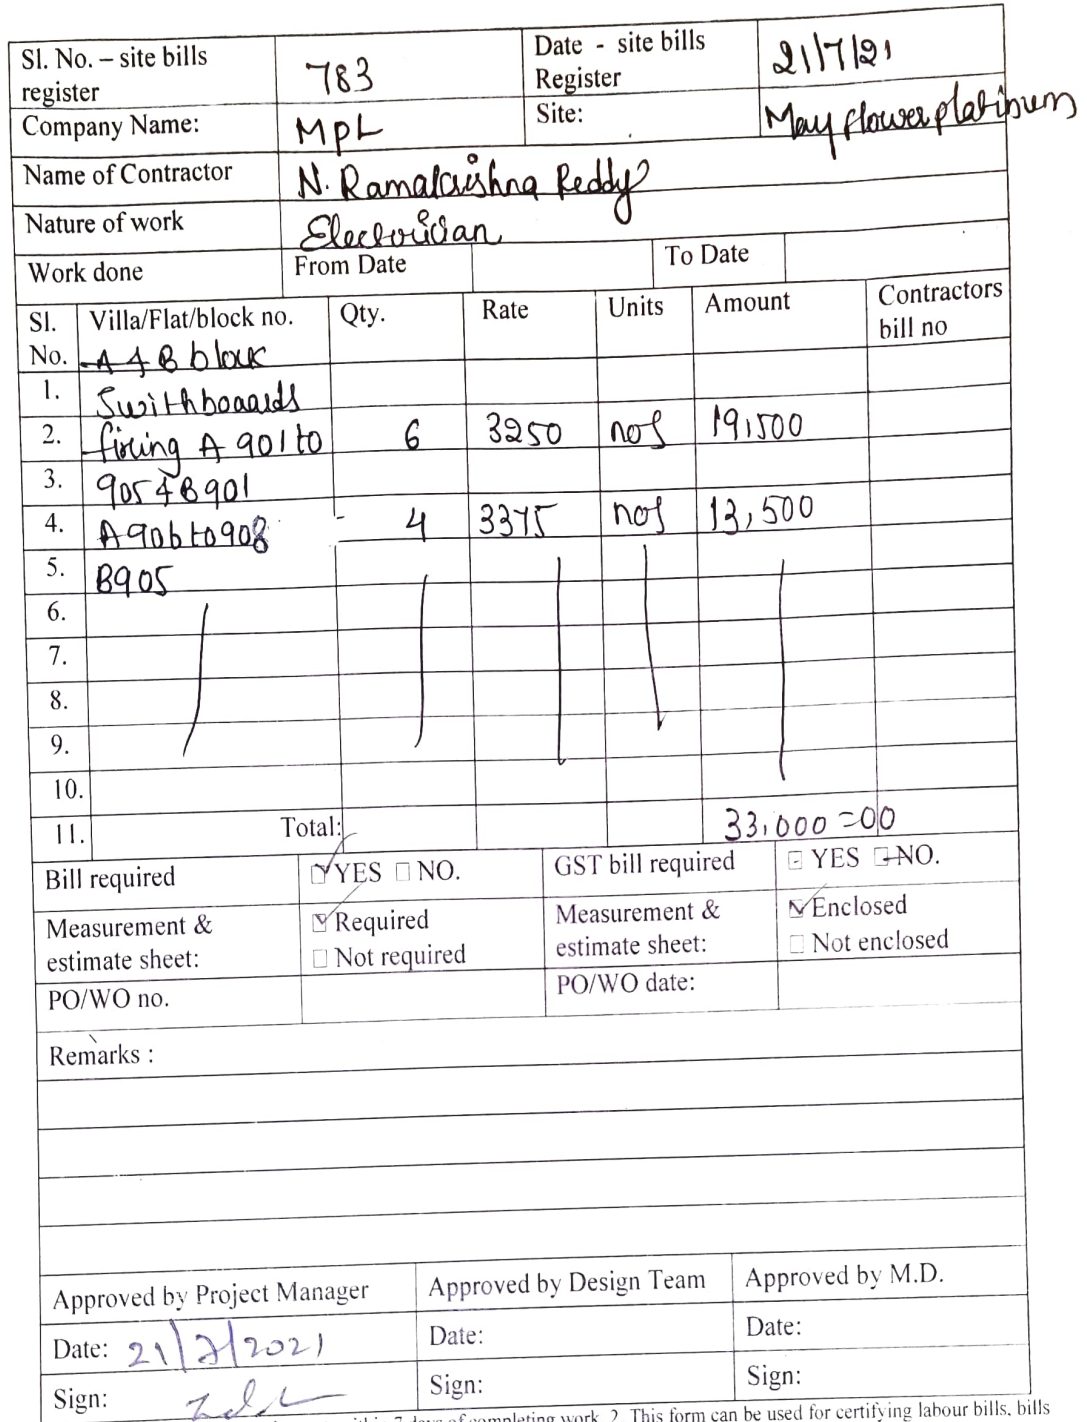 Sl. No. – site bills register 783 Date - site bills Register 21/7/21
Company Name: MPL Site: Mayflower platinum
Name of Contractor N. Ramakrishna Reddy
Nature of work Electrician
Work done From Date To Date
Sl. No. Villa/Flat/block no. Qty. Rate Units Amount Contractors bill no
A & B block
1. Swithboards
2. fixing A 901 to 6 3250 nos 19,500
3. 905 & B901
4. A906 to 908 4 3375 nos 13,500
5. B905
6.
7.
8.
9.
10.
11. Total: 33,000=00
Bill required YES NO. GST bill required YES NO.
Measurement & estimate sheet: Required Not required Measurement & estimate sheet: Enclosed Not enclosed
PO/WO no. PO/WO date:
Remarks :
Approved by Project Manager Approved by Design Team Approved by M.D.
Date: 21/7/2021 Date: Date:
Sign: Sign: Sign:
7 days of completing work. 2. This form can be used for certifying labour bills, bills